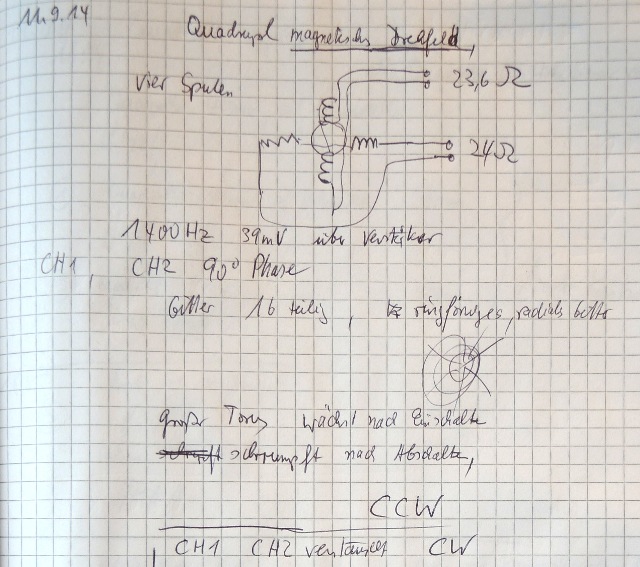 11.9.14
Quadrupol magnetisches Drehfeld,
23,6 Ω
vier Spulen
24 Ω
1400 Hz 39mV über Verstärker
CH1, CH2 90° Phase
Gitter 16 teilig, ringförmiges, radiales Gitter
großer Torus wächst nach Einschalten
schrumpft nach Abschalten,
CCW
CH1 CH2 vertauscht CW